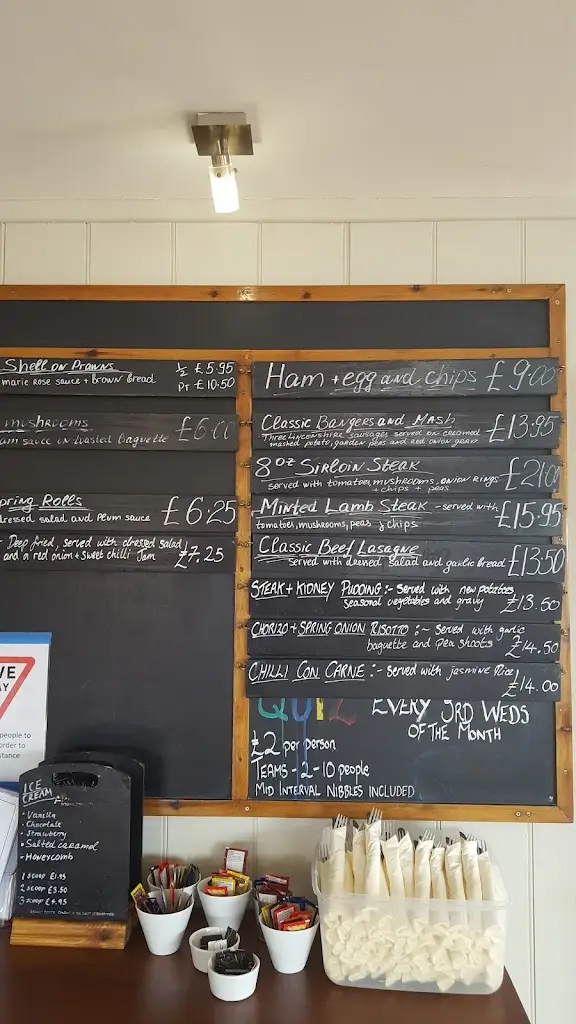 Shell on Prawns ½ £5.95
marie rose sauce + brown bread PT £10.50
mushrooms
sauce in toasted baguette £6.00
pring Rolls
dressed salad and plum sauce £6.25
Deep fried, served with dressed salad
and a red onion + sweet chilli jam £7.25
Ham + egg and chips £9.00
Classic Bangers and Mash £13.95
Three Lincolnshire sausages served on creamed
mashed potato, garden peas and red onion gravy
8oz Sirloin Steak £21.00
served with tomatoes, mushrooms, onion rings
+ chips + peas
Minted Lamb Steak - served with £15.95
tomatoes, mushrooms, peas & chips
Classic Beef Lasagne £13.50
served with dressed salad and garlic bread
STEAK + KIDNEY PUDDING :- Served with new potatoes,
seasonal vegetables and gravy £13.50
CHORIZO + SPRING ONION RISOTTO :- served with garlic
baguette and pea shoots £14.50
CHILLI CON CARNE :- served with jasmine Rice
£14.00
QUIZ EVERY 3RD WEDS
OF THE MONTH
£2 per person
TEAMS - 2-10 people
MID INTERVAL NIBBLES INCLUDED
VE
AY
people to
order to
stance
ICE
CREAM
- Vanilla
- Chocolate
- Strawberry
- Salted caramel
- Honeycomb
1 scoop £1.95
2 scoop £3.50
3 scoop £4.95